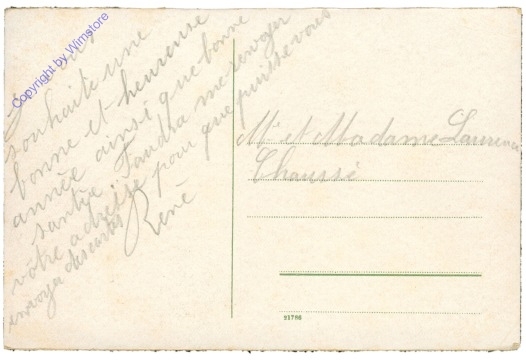 Je vous
souhaite une
bonne et heureuse
année ainsi que bonne
santée Faudra me renvoyer
votre adresse pour que puisse vous
envoya des cartes
René
Mr et Madame Laurence
Chaussé
93798
Copyright by Wimstore